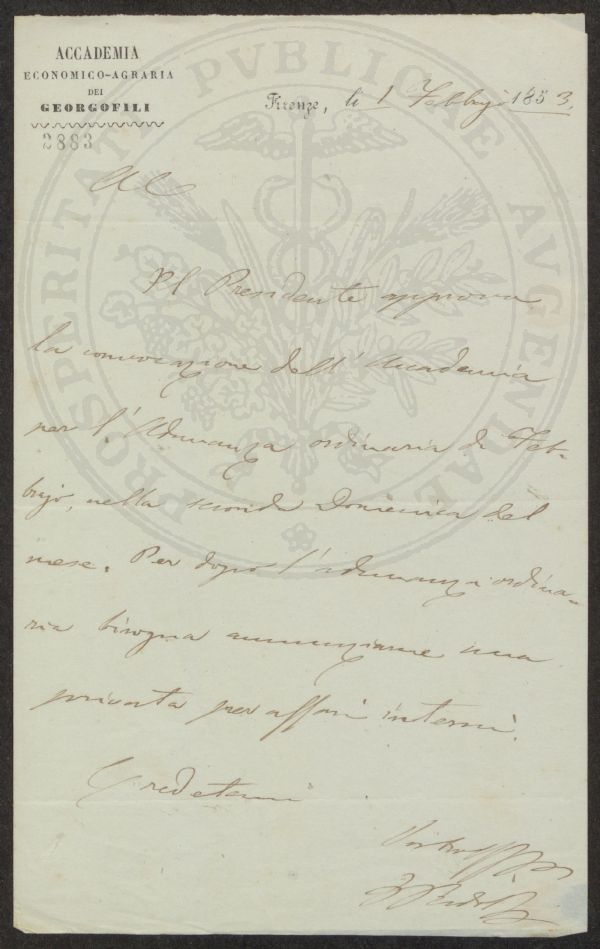 ACCADEMIA
ECONOMICO-AGRARIA
DEI
GEORGOFILI
2883
Firenze, li 1 Febbrajo 1853.
PROSPERITATI PVBLICAE AVGENDAE
Il Presidente approva
la convocazione dell' Accademia
per l'Adunanza ordinaria di Feb-
brajo, nella seconda Domenica del
mese. Per dopo l'adunanza ordina-
ria bisogna annunziarne una
privata per affari interni.
Credetemi